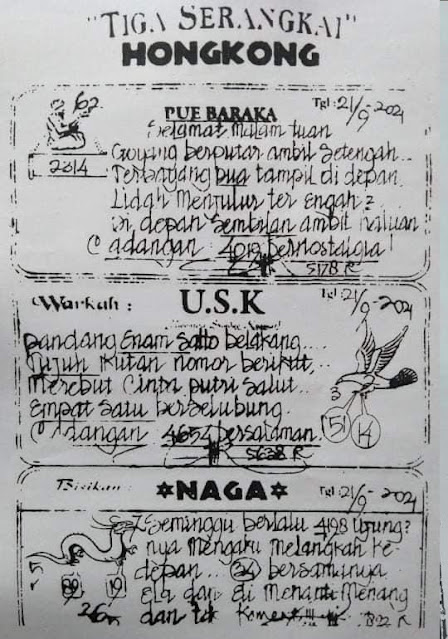 "TIGA SERANGKAI"
HONGKONG
62
2314
PUE BARAKA
Tgl: 21/9-2021
Selamat malam tuan
Goyang berputar ambil setengah...
Terbayang dua tampil di depan
Lidah menjulur ter engah?
Di depan sembilan ambil haluan
Cadangan : 4013 bernostalgia!
5178 R
Warkah :
U.S.K
Tgl: 21/9-2021
pandang enam satto belakang....
Tujuh ikutan nomor berikut,..
Merebut cinta putri salut..
Empat satu berselubung.
Cadangan 4654 bersalaman.
5638 R
51
14
Bisikan :
NAGA
Tgl: 21/9-2021
Seminggu berlalu 4198 ujung?
nya mengaku melangkah ke
depan... 24 bersamanya
dan di Menanti Menang
dan tak
89
19
26